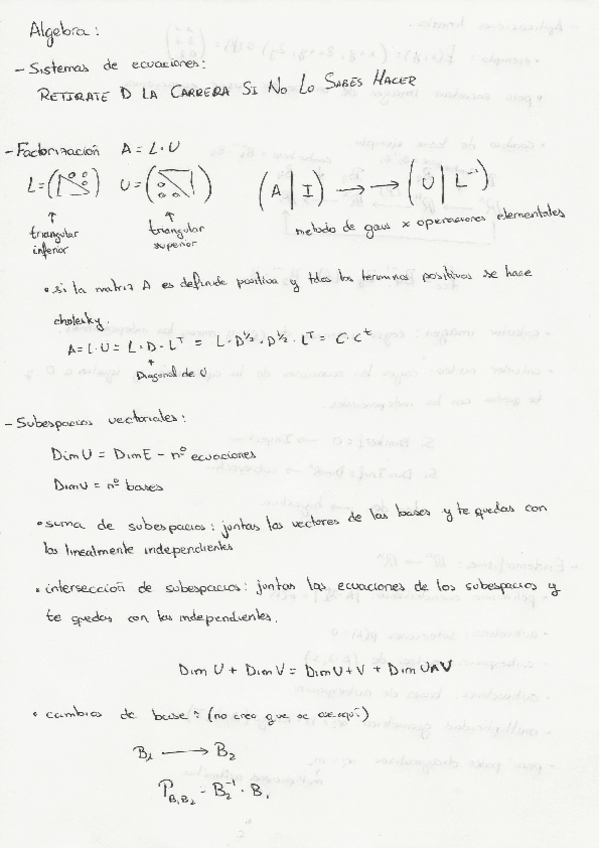 Algebra:
- Sistemas de ecuaciones:
RETIRATE D LA CARRERA SI NO LO SABES HACER
- Factorización A = L · U
L = ( ) U = ( ) ( A | I ) → → ( U | L⁻¹ )
↑ ↑
triangular inferior triangular superior metodo de gaus x operaciones elementales
• si la matriz A es definide positiva y tdos los terminos positivos se hace
cholesky.
A = L · U = L · D · Lᵀ = L · D^½ · D^½ · Lᵀ = C · Cᵗ
↑
Diagonal de U
- Subespacios vectoriales:
Dim U = Dim E - nº ecuaciones
Dim U = nº bases
• suma de subespacios: juntas los vectores de las bases y te quedas con
los linealmente independientes
• intersección de subespacios: juntas las ecuaciones de los subespacios y
te quedas con las independientes.
Dim U + Dim V = Dim U+V + Dim U∩V
• cambios de base: (no creo que se
B₁ → B₂
P_B₁B₂ = B₂⁻¹ · B₁